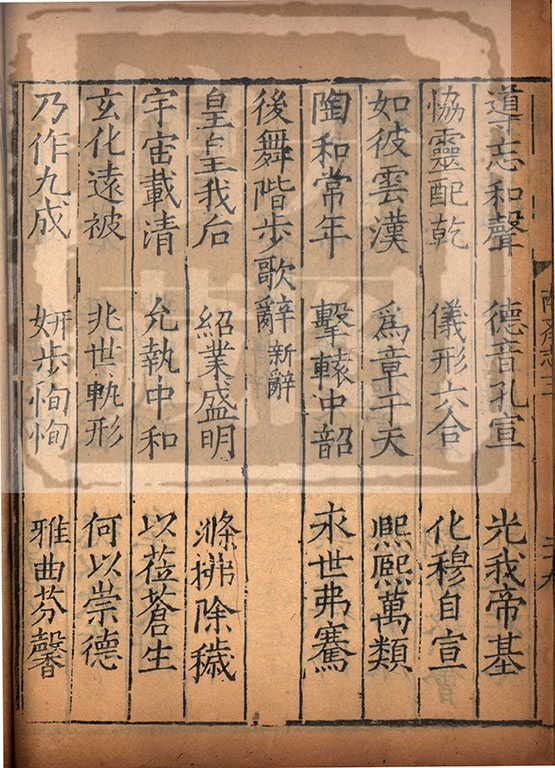 導志和聲　德音孔宣　光我帝基
協靈配乾　儀形六合　化穆自宣
如彼雲漢　爲章于天　熙熙萬類
陶和常年　擊轅中韶　永世弗騫
後舞階步歌辭新辭
皇皇我后　紹業盛明　滌拂除穢
宇宙載清　允執中和　以莅蒼生
玄化遠被　兆世軌形　何以崇德
乃作九成　妍步恂恂　雅曲芬馨